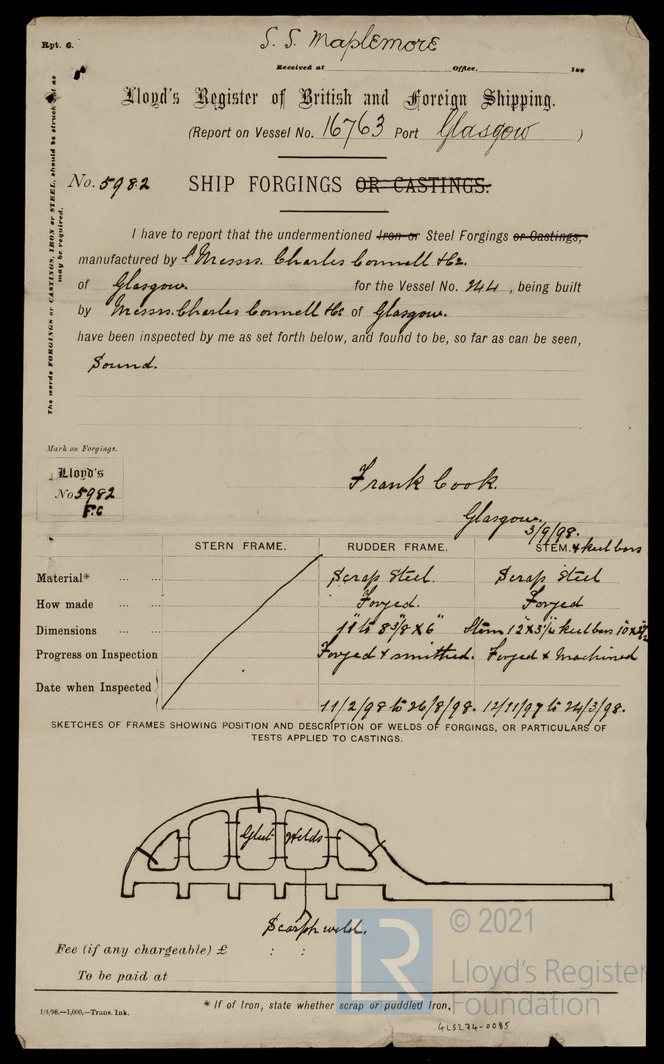 Rpt. 6.
S. S. Maplemore
Received at Office, 18
Lloyd's Register of British and Foreign Shipping.
(Report on Vessel No. 16763 Port Glasgow )
No. 5982 SHIP FORGINGS OR CASTINGS.
The words FORGINGS or CASTINGS, IRON or STEEL, should be struck out as may be required.
I have to report that the undermentioned Iron or Steel Forgings or Castings,
manufactured by Messrs. Charles Connell & Co.
of Glasgow. for the Vessel No. 244, being built
by Messrs. Charles Connell & Co of Glasgow.
have been inspected by me as set forth below, and found to be, so far as can be seen,
Sound.
Mark on Forgings.
Lloyd's
No 5982
F.C
Frank Cook.
Glasgow.
3/9/98.
STERN FRAME. RUDDER FRAME. STEM. & keel bars
Material* ... ... Scrap Steel. Scrap Steel
How made ... ... Forged. Forged
Dimensions ... ... to 8 3/8 x 6" Stem 12" x 3 1/4 keel bars 10" x
Progress on Inspection Forged & smithed. Forged & Machined
Date when Inspected 11/2/98 to 26/8/98. 12/11/97 to 24/3/98.
SKETCHES OF FRAMES SHOWING POSITION AND DESCRIPTION OF WELDS OF FORGINGS, OR PARTICULARS OF
TESTS APPLIED TO CASTINGS.
Glut Welds
Scarph weld.
Fee (if any chargeable) £ : :
To be paid at
* If of Iron, state whether scrap or puddled Iron.
1/4/98.—1,000.—Trans. Ink.
GLS274-0085
LR
© 2021
Lloyd's Register
Foundation